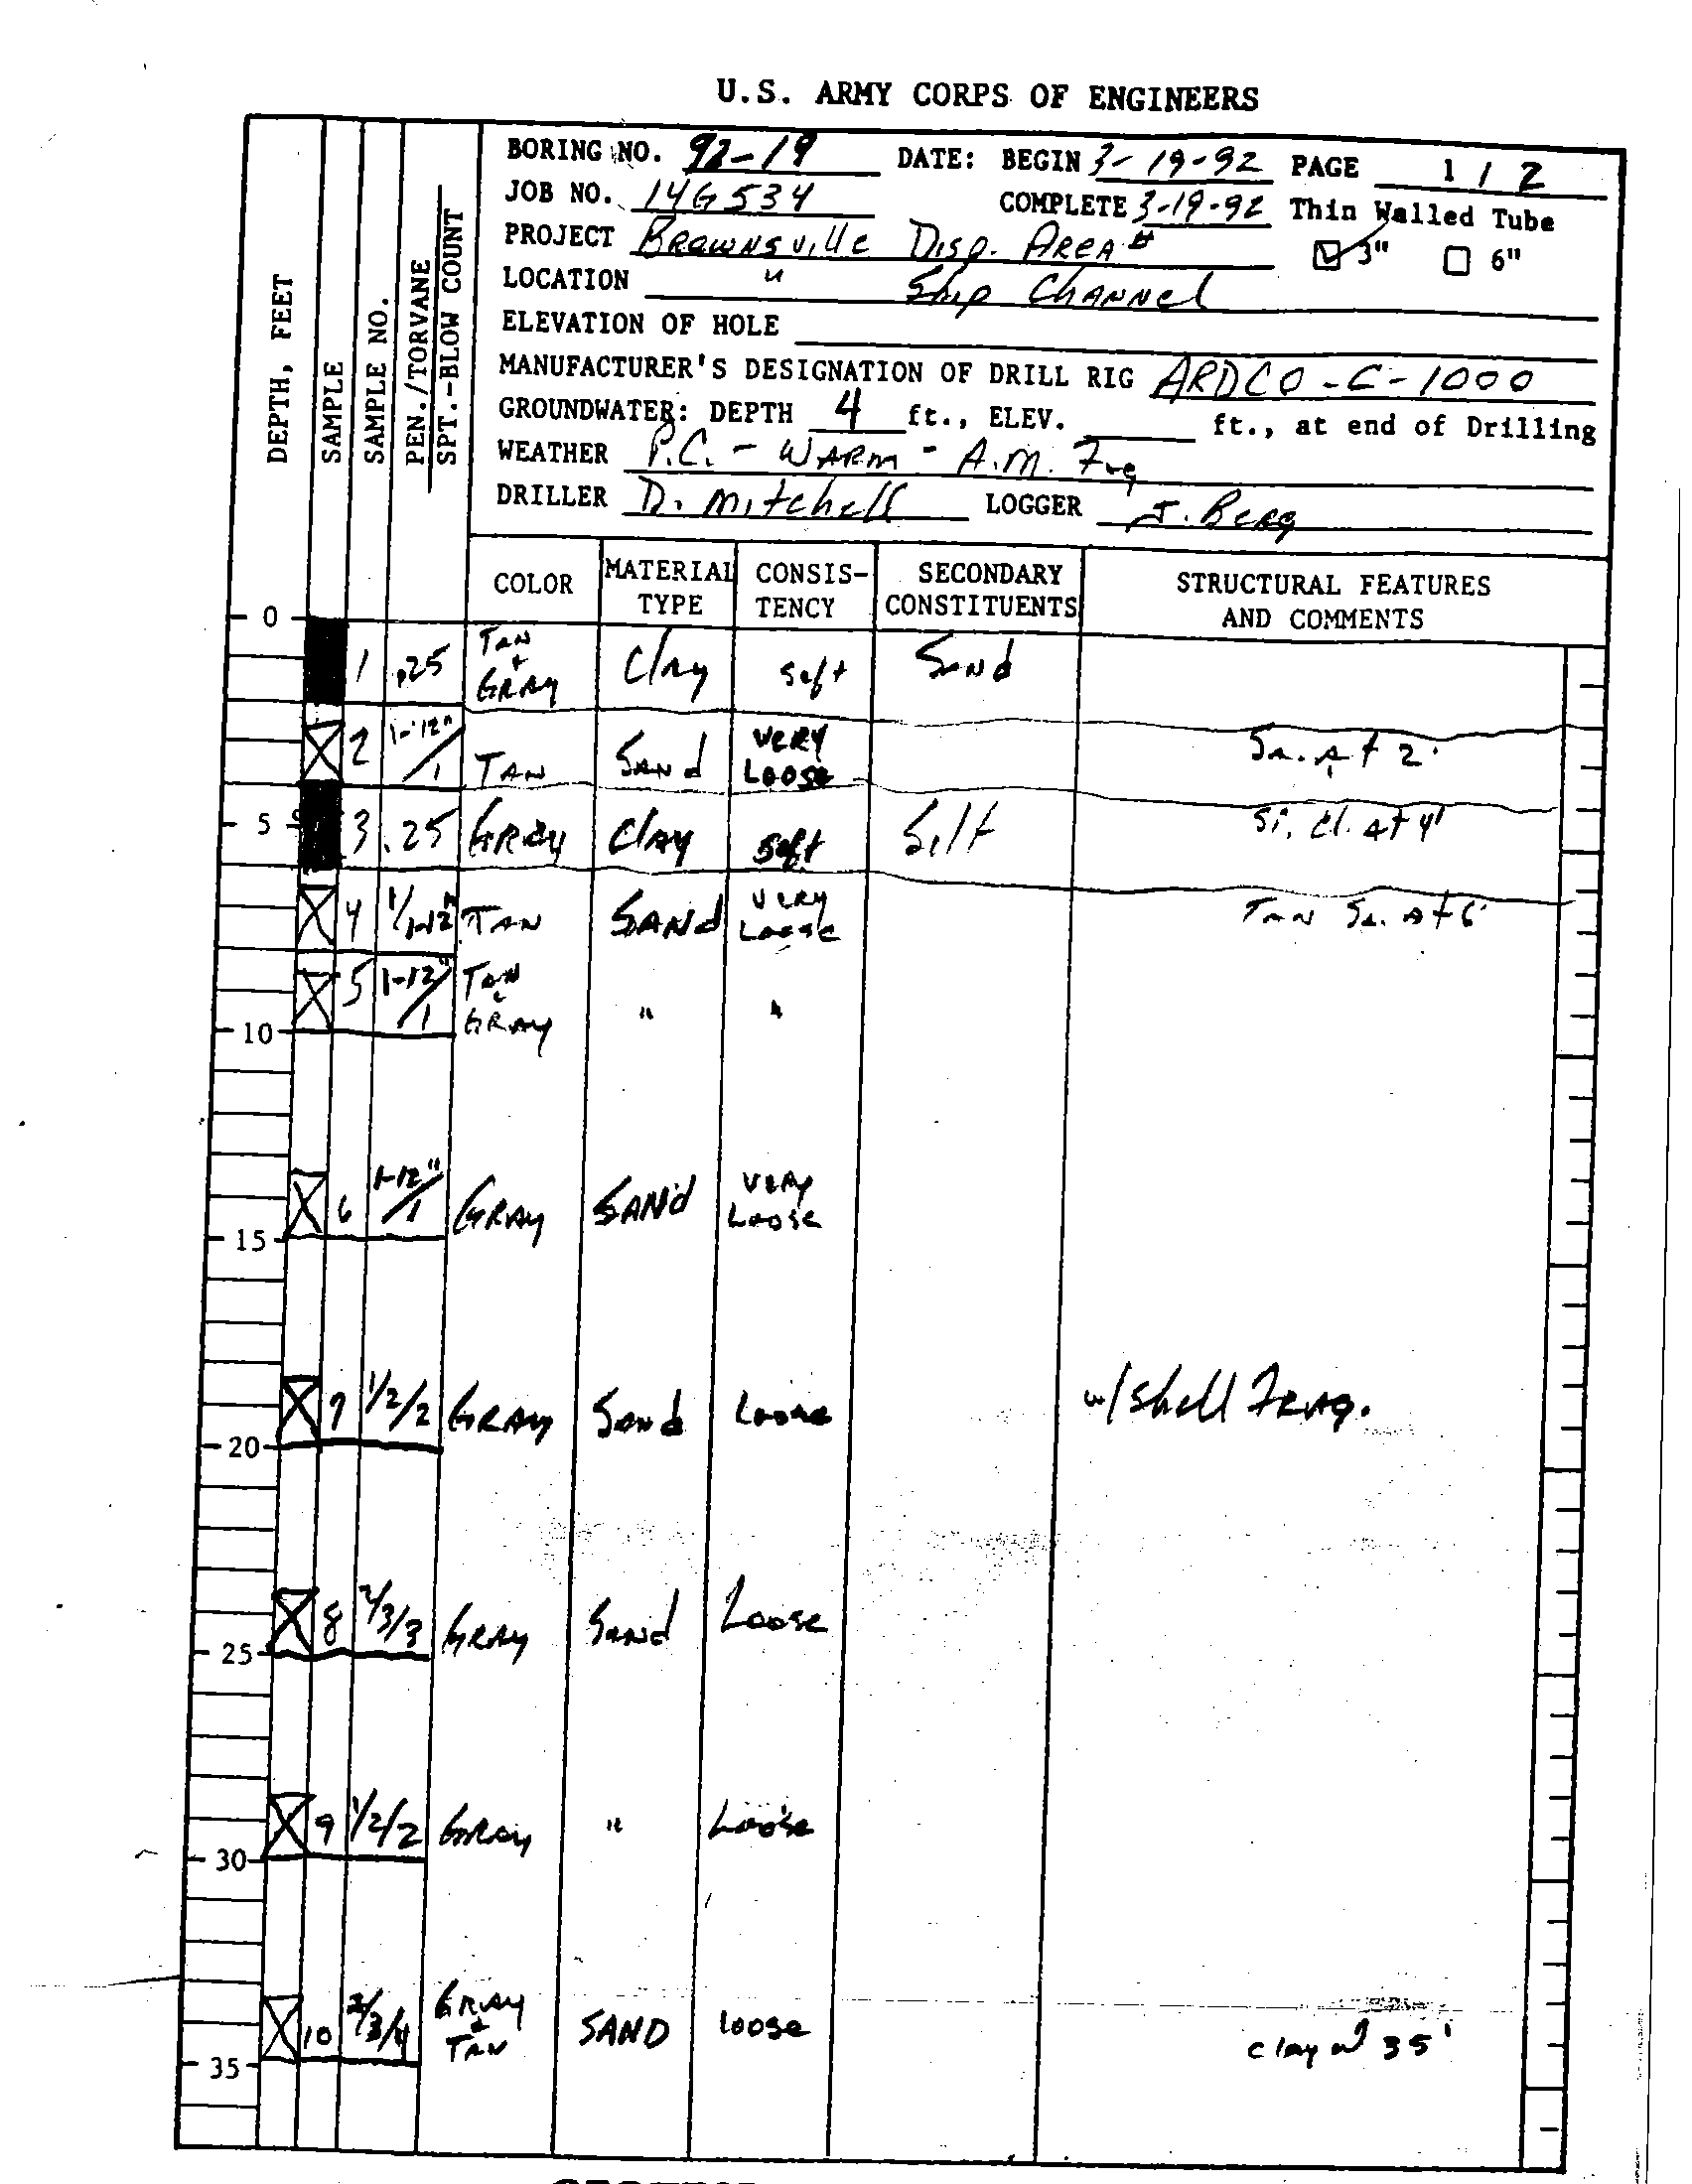 U.S. ARMY CORPS OF ENGINEERS
BORING NO. 92-19 DATE: BEGIN 3-19-92 PAGE 1 / 2
JOB NO. 14G534 COMPLETE 3-19-92 Thin Walled Tube
PROJECT Brownsville Disp. Area # 3" 6"
LOCATION " Ship Channel
ELEVATION OF HOLE
MANUFACTURER'S DESIGNATION OF DRILL RIG ARDCO-C-1000
GROUNDWATER: DEPTH 4 ft., ELEV. ft., at end of Drilling
WEATHER P.C. - WARM - A.M. Fog
DRILLER D. Mitchell LOGGER J. Berg
DEPTH, FEET
SAMPLE
SAMPLE NO.
PEN./TORVANE
SPT.-BLOW COUNT
COLOR MATERIAL TYPE CONSIS-TENCY SECONDARY CONSTITUENTS STRUCTURAL FEATURES AND COMMENTS
0
1 .25 TAN + GRAY Clay Soft Sand
2 1-12"/1 TAN SAND VERY LOOSE Sa. At 2'
5 3 .25 GRAY Clay Soft Silt Si. Cl. At 4'
4 1/1-12" TAN SAND VERY LOOSE TAN Sa. At 6'
5 1-12"/1 TAN & GRAY " "
10
6 1-12"/1 GRAY SAND VERY LOOSE
15
7 1/2/2 GRAY Sand Loose w/ Shell Frag.
20
8 2/3/3 GRAY Sand Loose
25
9 1/2/2 GRAY " Loose
30
10 2/3/4 GRAY & TAN SAND Loose clay @ 35'
35